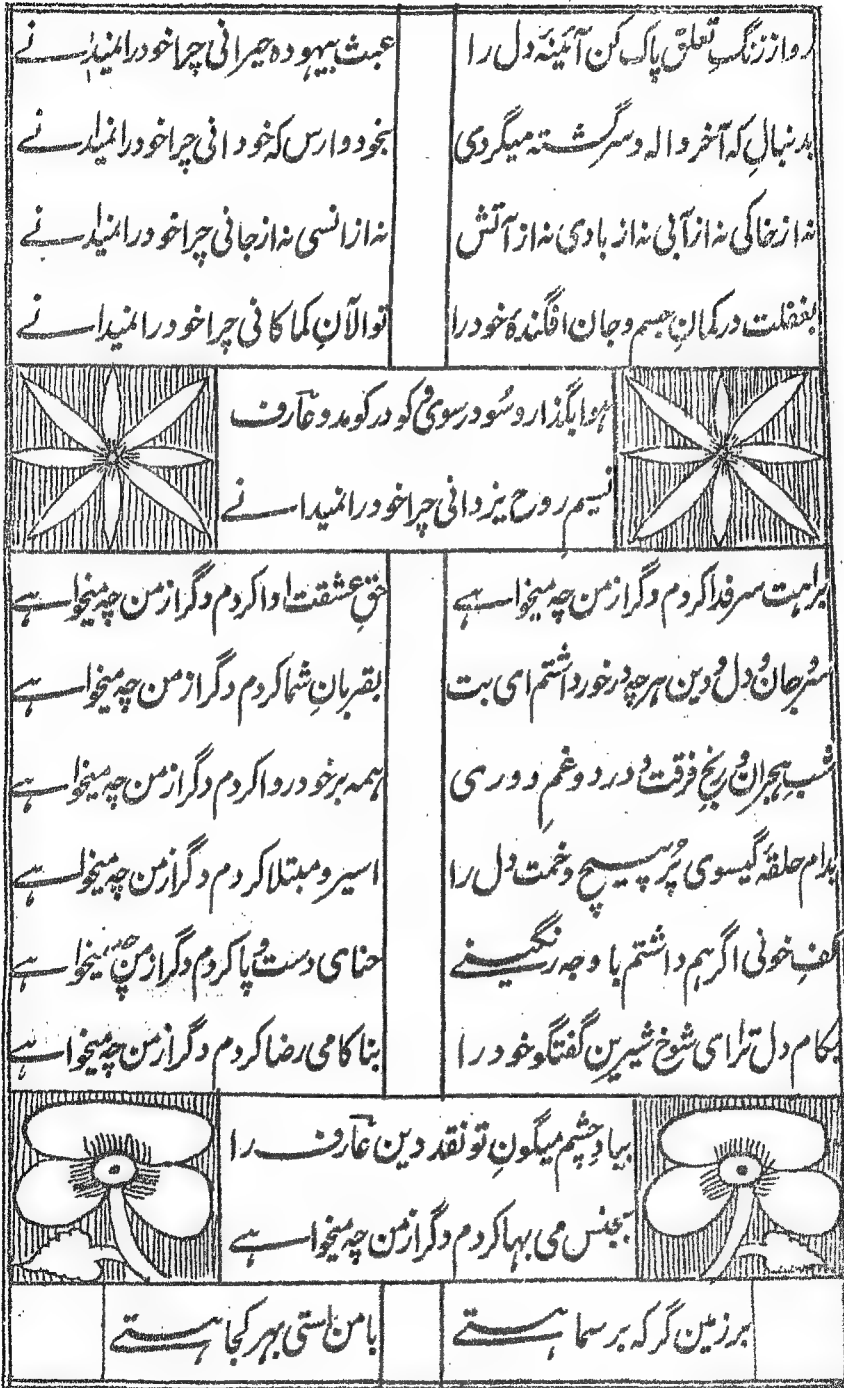 رو از زنگِ تعلّق پاک کن آئینهٔ دل را
عبث بیهوده حیرانی چرا خود را نمیدانے
بدنبالِ که آخر واله و سرگشته میگردی
بخود وارس که خود دانی چرا خود را نمیدانے
نه از خاکی نه از آبی نه از بادی نه از آتش
نه از انسی نه از جانی چرا خود را نمیدانے
بغفلت در کمانِ جسم و جان افگندهٔ خود را
تو الآنِ کما کانی چرا خود را نمیدانے
هوا بگذار و سُو در سوی کو در کو مدو عارف
نسیمِ روحِ یزدانی چرا خود را نمیدانے
براهت سر فدا کردم دگر از من چه میخواهے
حقِ عشقت ادا کردم دگر از من چه میخواهے
سر و جان و دل و دین هرچه در خور داشتم ای بت
بقربانِ شما کردم دگر از من چه میخواهے
شبِ هجران و رنجِ فرقت و درد و غمِ دوری
همه بر خود روا کردم دگر از من چه میخواهے
بدامِ حلقهٔ گیسوی پُر پیچ و خمت دل را
اسیر و مبتلا کردم دگر از من چه میخواهے
کفِ خونی اگر هم داشتم با وجه رنگینے
حنای دست و پا کردم دگر از من چه میخواهے
بکام دل ترا ای شوخ شیرین گفتگو خود را
بناکامی رضا کردم دگر از من چه میخواهے
بیادِ چشمِ میگونِ تو نقد دین عارف را
بجنس می بها کردم دگر از من چه میخواهے
بر زمین گر که بر سما هستے
با من استی بهر کجا هستے